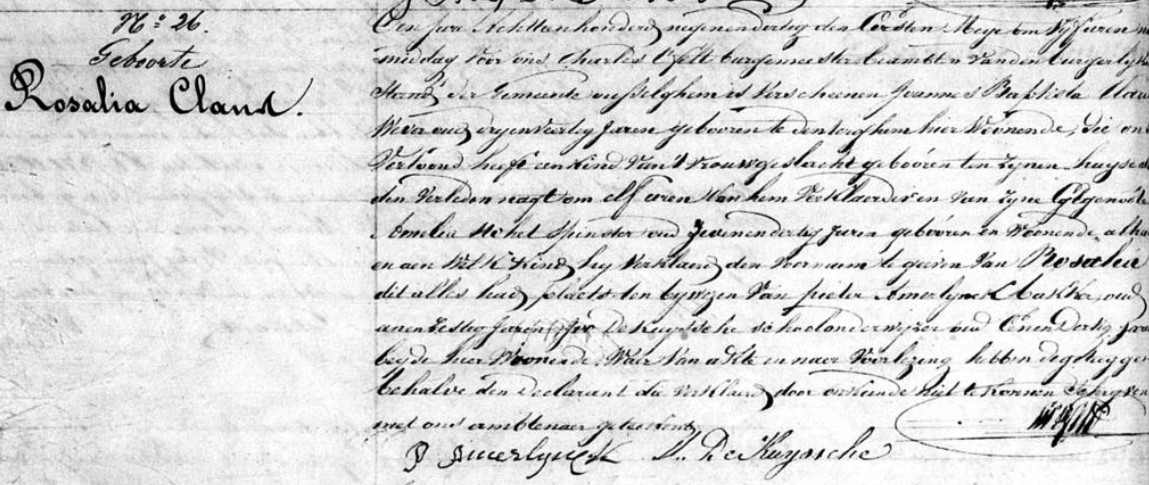 N.º 26.
Geboorte
Rosalia Claus.
Den jare Achttien honderd negenendertig den Eersten Meye om Vyf uren
middag voor ons Charles burgemeester beambten van den burgerlyken
Stand der Gemeente is verscheenen Joannes Baptista
Wever oud dryenveertig jaren gebooren te denterghem hier Woonende, die
Vertoond heeft een kind van 't vrouwgeslacht gebooren ten zynen huyse
den verleden nagt om elf uren van hem Verklaerder en van zyne Egtgenoote
Amelia spinster oud zevenendertig jaren gebooren en Woonende
en aen Welk kind hy verklaerd den voornaem te geeven van Rosalia
dit alles had plaets ten bywezen van pieter Amerlynck oud
jaren De Kuyssche schoolonderwyzer oud Eenendertig
beyde hier Woonende, Waer van akte en naer voorlezing hebben
behalve den declarant die verklaerd door onkunde niet te konnen
met ons amblenaer geteekend
P Amerlynck De Kuyssche